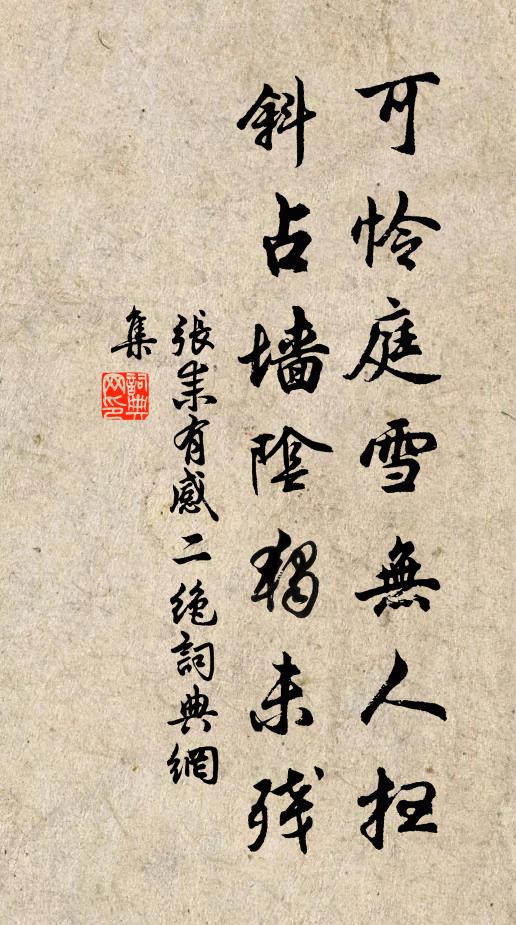 可怜庭雪無人扫
斜占墙陰獨未残
張耒有感二绝詞典網
集
詞典網印